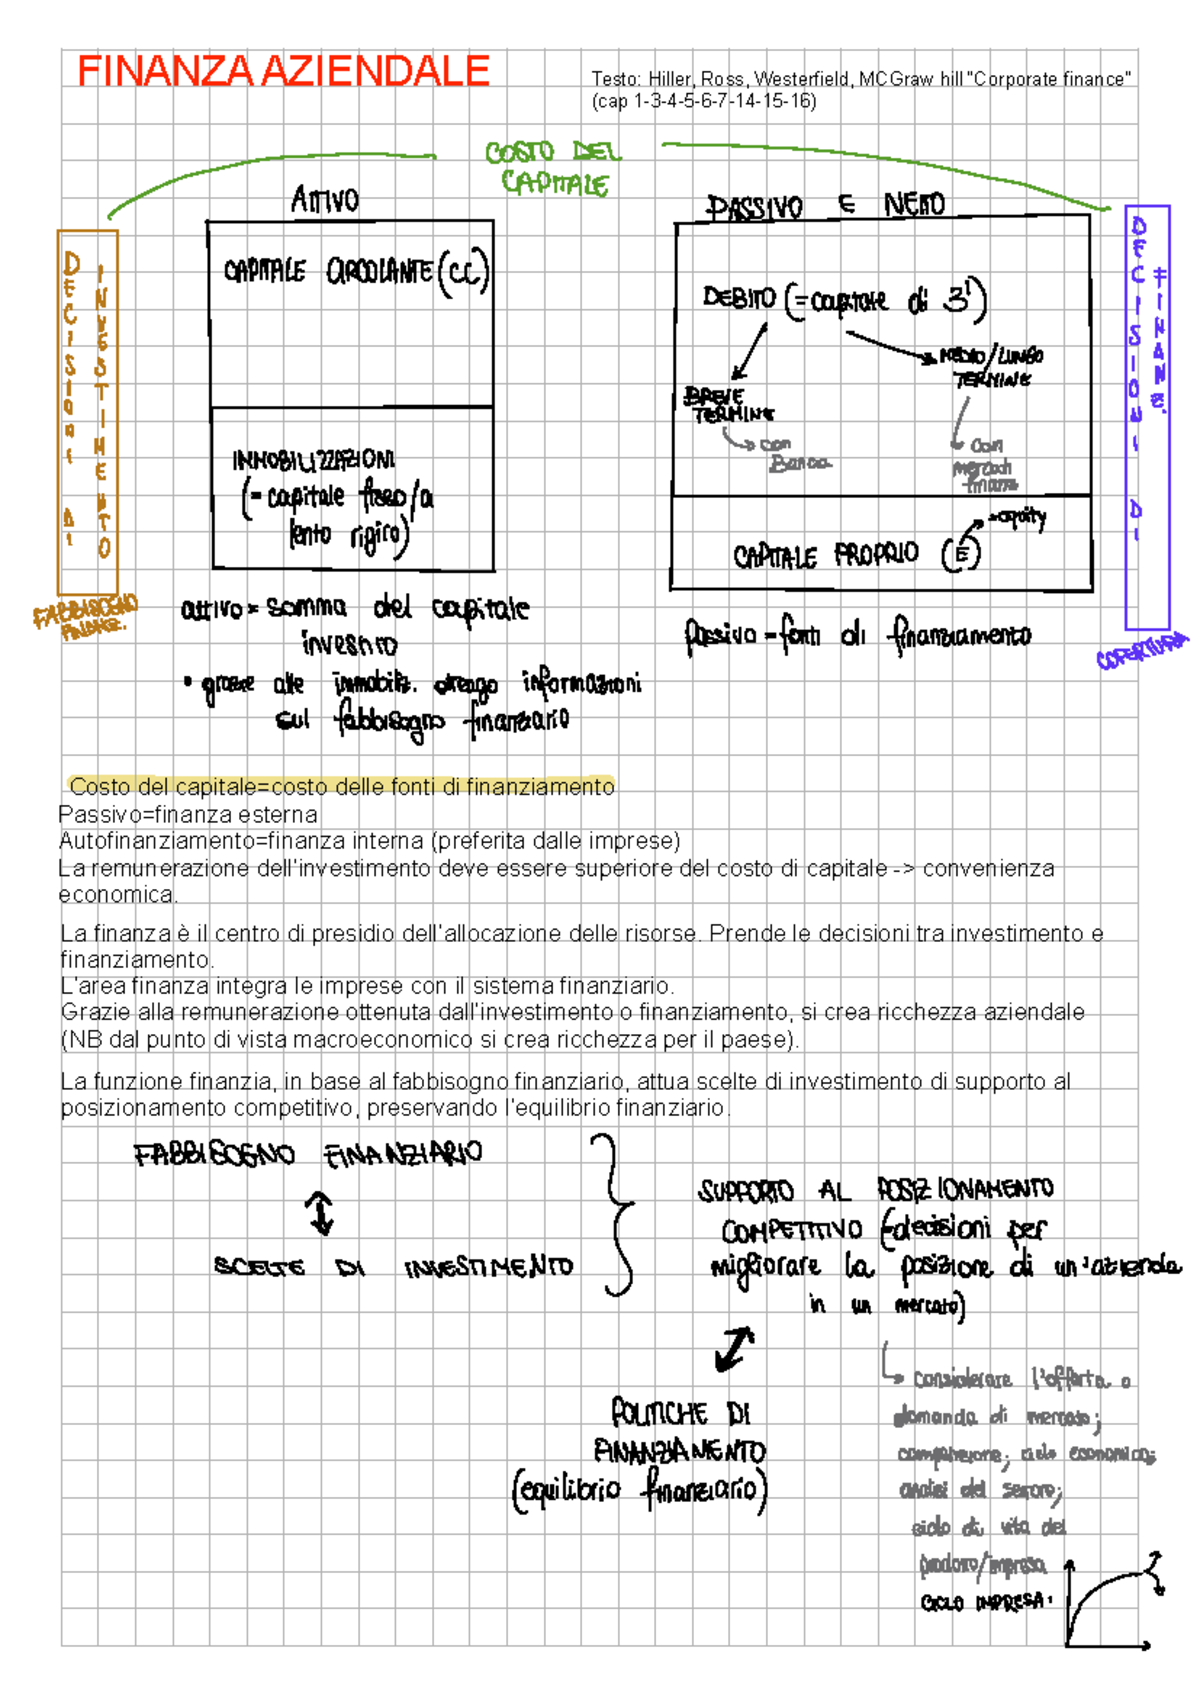 FINANZA AZIENDALE
Testo: Hiller, Ross, Westerfield, MCGraw hill "Corporate finance"
(cap 1-3-4-5-6-7-14-15-16)
COSTO DEL
CAPITALE
ATTIVO
PASSIVO E NETTO
DECISIONI DI
INVESTIMENTO
CAPITALE CIRCOLANTE (CC)
IMMOBILIZZAZIONI
(= capitale fisso/a
lento rigiro)
FABBISOGNO
FINANZ.
DEBITO (= capitale di 3ⁱ)
BREVE
TERMINE
MEDIO/LUNGO
TERMINE
con
Banca
con
mercati
finanz
= equity
CAPITALE PROPRIO (E)
DECISIONI DI
FINANZ.
COPERTURA
attivo = somma del capitale
investito
• grazie alle immobiliz. ottengo informazioni
sul fabbisogno finanziario
passivo = fonti di finanziamento
Costo del capitale=costo delle fonti di finanziamento
Passivo=finanza esterna
Autofinanziamento=finanza interna (preferita dalle imprese)
La remunerazione dell'investimento deve essere superiore del costo di capitale -> convenienza
economica.
La finanza è il centro di presidio dell'allocazione delle risorse. Prende le decisioni tra investimento e
finanziamento.
L'area finanza integra le imprese con il sistema finanziario.
Grazie alla remunerazione ottenuta dall'investimento o finanziamento, si crea ricchezza aziendale
(NB dal punto di vista macroeconomico si crea ricchezza per il paese).
La funzione finanzia, in base al fabbisogno finanziario, attua scelte di investimento di supporto al
posizionamento competitivo, preservando l'equilibrio finanziario.
FABBISOGNO FINANZIARIO
SCELTE DI INVESTIMENTO
SUPPORTO AL POSIZIONAMENTO
COMPETITIVO (=decisioni per
migliorare la posizione di un'azienda
in un mercato)
POLITICHE DI
FINANZIAMENTO
(equilibrio finanziario)
considerare l'offerta o
domanda di mercato;
competizione; ciclo economico;
analisi del settore;
ciclo di vita del
prodotto/impresa
CICLO IMPRESA: